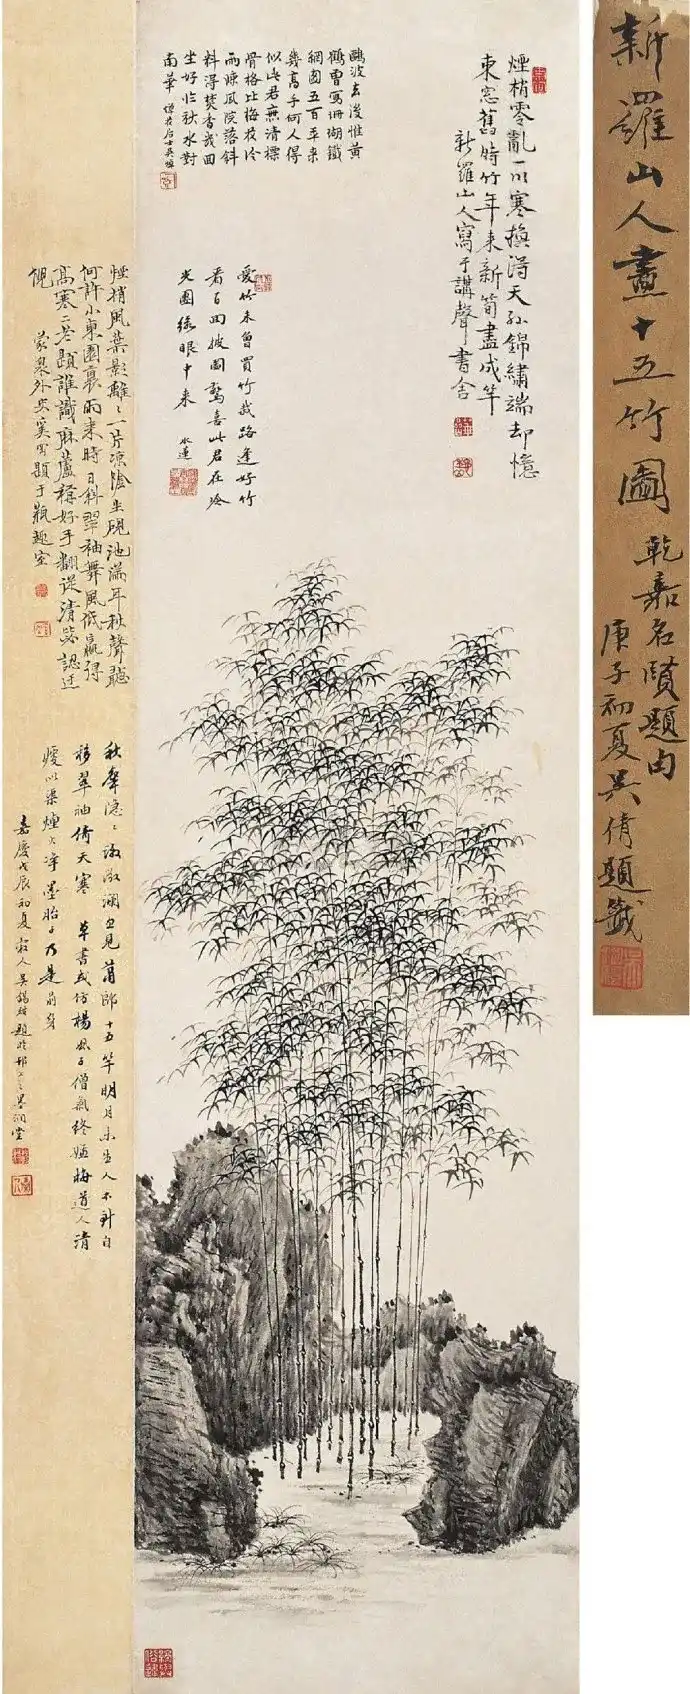 新羅山人畫十五竹圖
乾嘉名賢題由
庚子初夏吳倩題籤
煙梢零亂一以寒換得天孫錦繡端却憶
東窓舊時竹年來新筍盡成竿
新羅山人寫于講聲書舍
鷗波去後惟黄
鶴曹寫珊瑚鐵
網圖五百年來
幾高手何人得
似此君無清標
骨格比梅枝冷
雨疎風院落斜
料得焚香幾回
坐好臨秋水對
南華 居士吳
愛竹未曾買竹栽路逢好竹
看百回披圖驚喜此君在冷
光團綠眼中來 水蓮
煙梢風葉影離〻一片凉陰坐硯池滿耳秋聲聽
何許小東園裏雨來時日斜翠袖舞風低贏得
高寒二老題誰識麻蘆稱好手翻從清閟認迂
倪 蒙泉外史奚岡題于瓶趣室
秋聲隱〻激微瀾忽見蕭郎十五竿明月未出人不到自
移翠袖倚天寒 草書或仿楊風子僧氣終嫌梅道人清
瘦以渠煙火淨墨胎〻乃是前身
嘉慶戊辰初夏穀人吳錫麒題於邗上之 堂